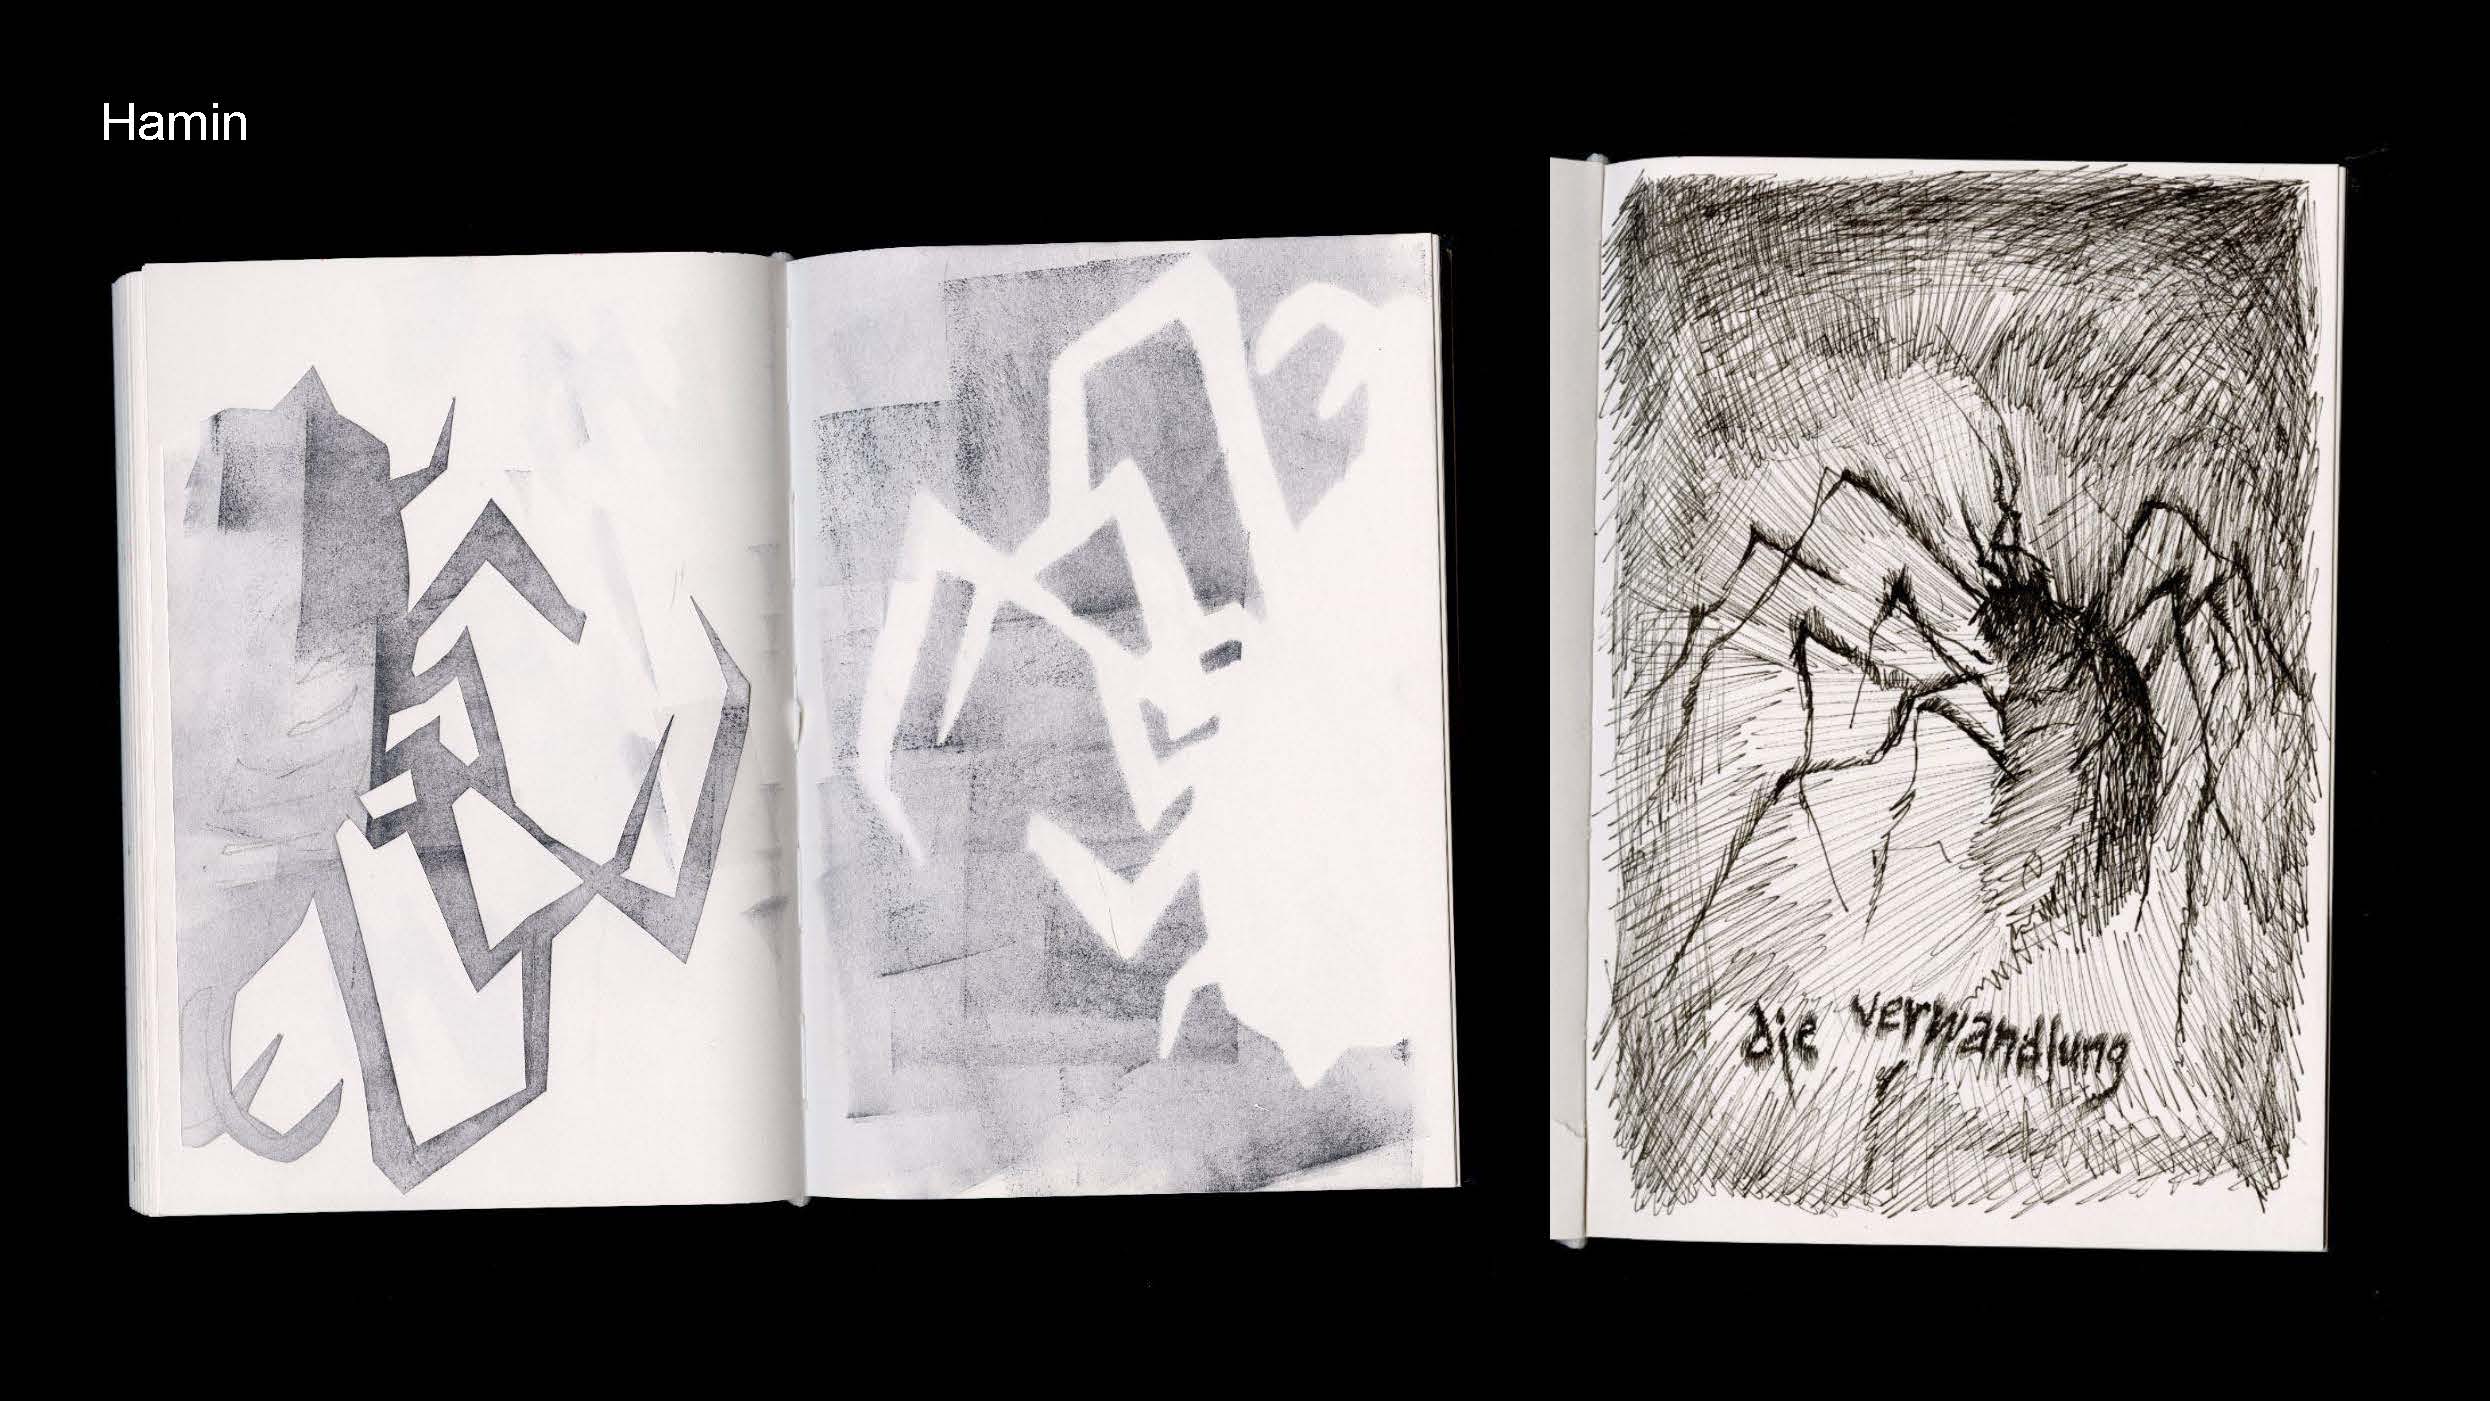 Hamin
die verwandlung